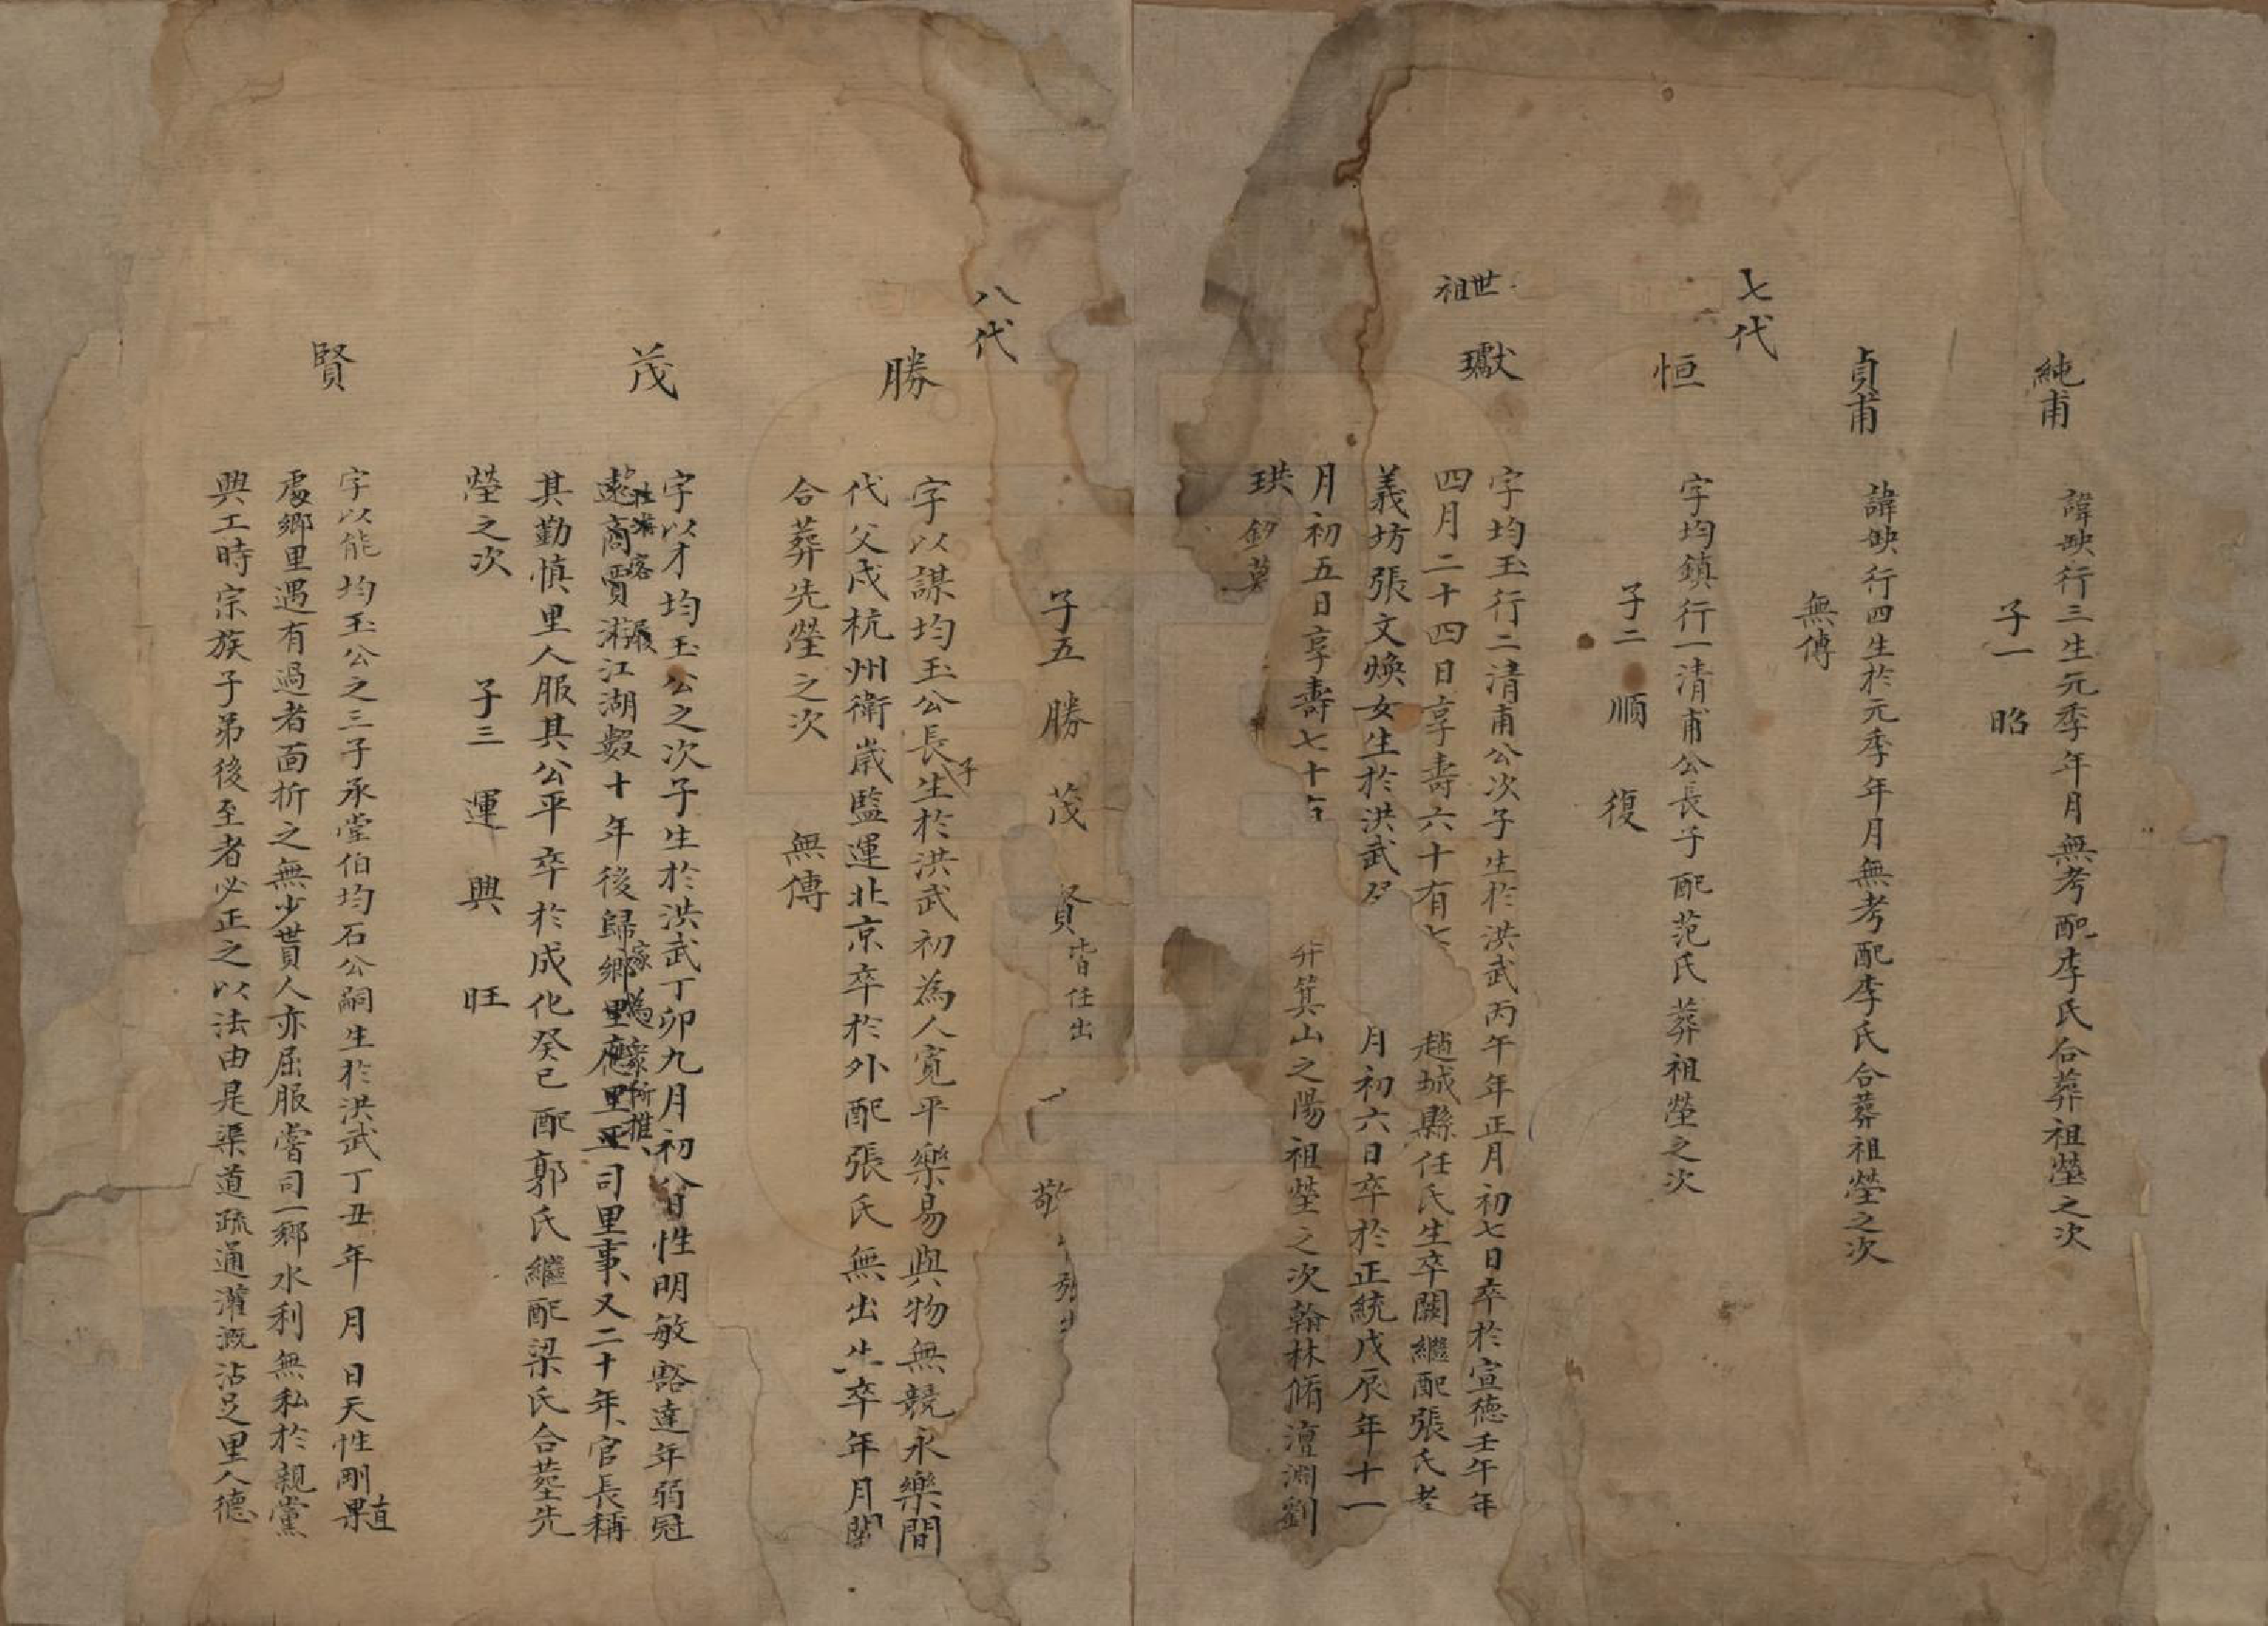 純甫
諱映行三生元季年月無考配李氏合葬祖塋之次
子一 昭
貞甫
諱映行四生於元季年月無考配李氏合葬祖塋之次
無傳
七代
恒
字均鎮行一清甫公長子配范氏葬祖塋之次
子二 順 復
世祖
瓛
字均玉行二清甫公次子生於洪武丙午年正月初七日卒於宣德壬午年
四月二十四日享壽六十有七 趙城縣任氏生卒闕繼配張氏孝
義坊張文煥女生於洪武 月初六日卒於正統戊辰年十一
月初五日享壽七十 箕山之陽祖塋之次翰林脩澶淵劉
珙 墓
子五 勝 茂 賢 皆任出 敬
八代
勝
字以謀均玉公長子生於洪武初為人寬平樂易與物無競永樂間
代父戍杭州衛歲監運北京卒於外配張氏無出生卒年月闕
合葬先塋之次 無傳
茂
字以才均玉公之次子生於洪武丁卯九月初八日性明敏豁達年弱冠
遠商賈湘江湖數十年後歸鄉里應里正司里事又二十年官長稱
其勤慎里人服其公平卒於成化癸巳配郭氏繼配梁氏合塟先
塋之次 子三 運 興 旺
賢
字以能均玉公之三子承堂伯均石公嗣生於洪武丁丑年月日天性剛果直
處鄉里遇有過者面折之無少貰人亦屈服嘗司一鄉水利無私於親黨
興工時宗族子弟後至者必正之以法由是渠道疏通灌溉沾足里人德